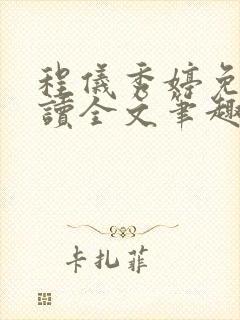 程儀秀婷免
讀全文筆趣
卡扎菲